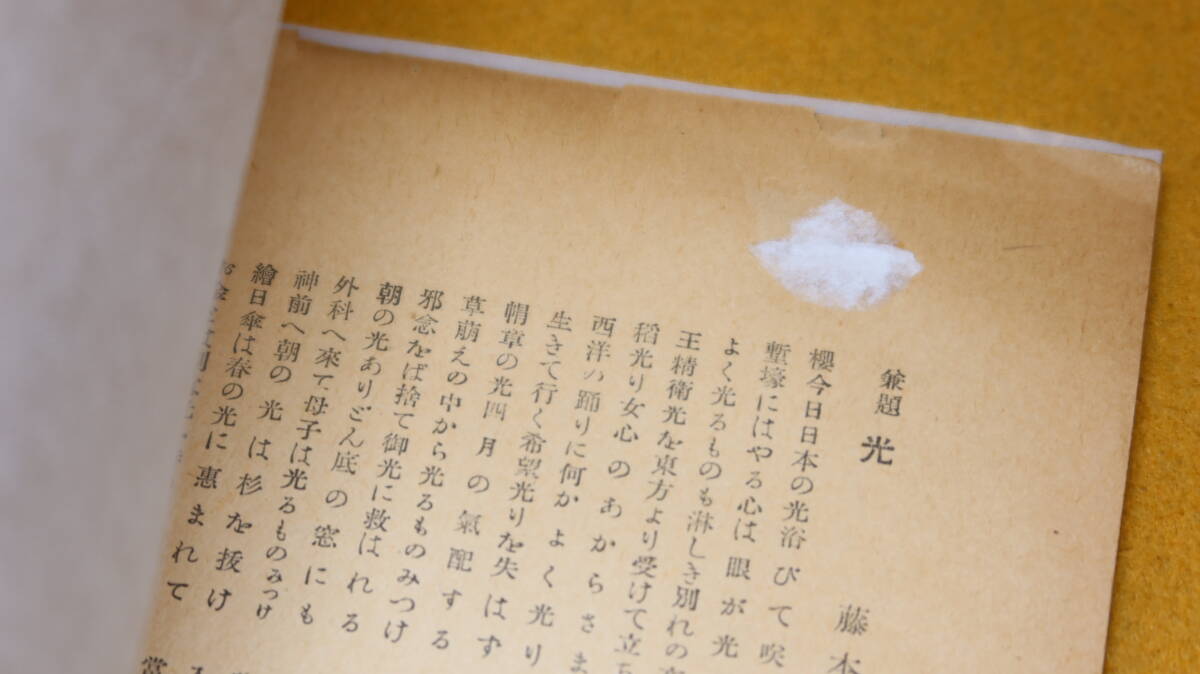 兼題 光
藤本
櫻今日日本の光浴びて咲
塹壕にはやる心は眼が光
よく光るものも淋しき別れの
王精衛光を東方より受けて立ち
稻光り女心のあからさま
西洋の踊りに何かよく光り
生きて行く希望光りを失はず
帽章の光四月の氣配する
草萠えの中から光るものみつけ
邪念をば捨て御光に救はれる
朝の光ありどん底の窓にも
外科へ來て母子は光るものみつけ
神前へ朝の光は杉を拔け
繪日傘は春の光に惠まれて